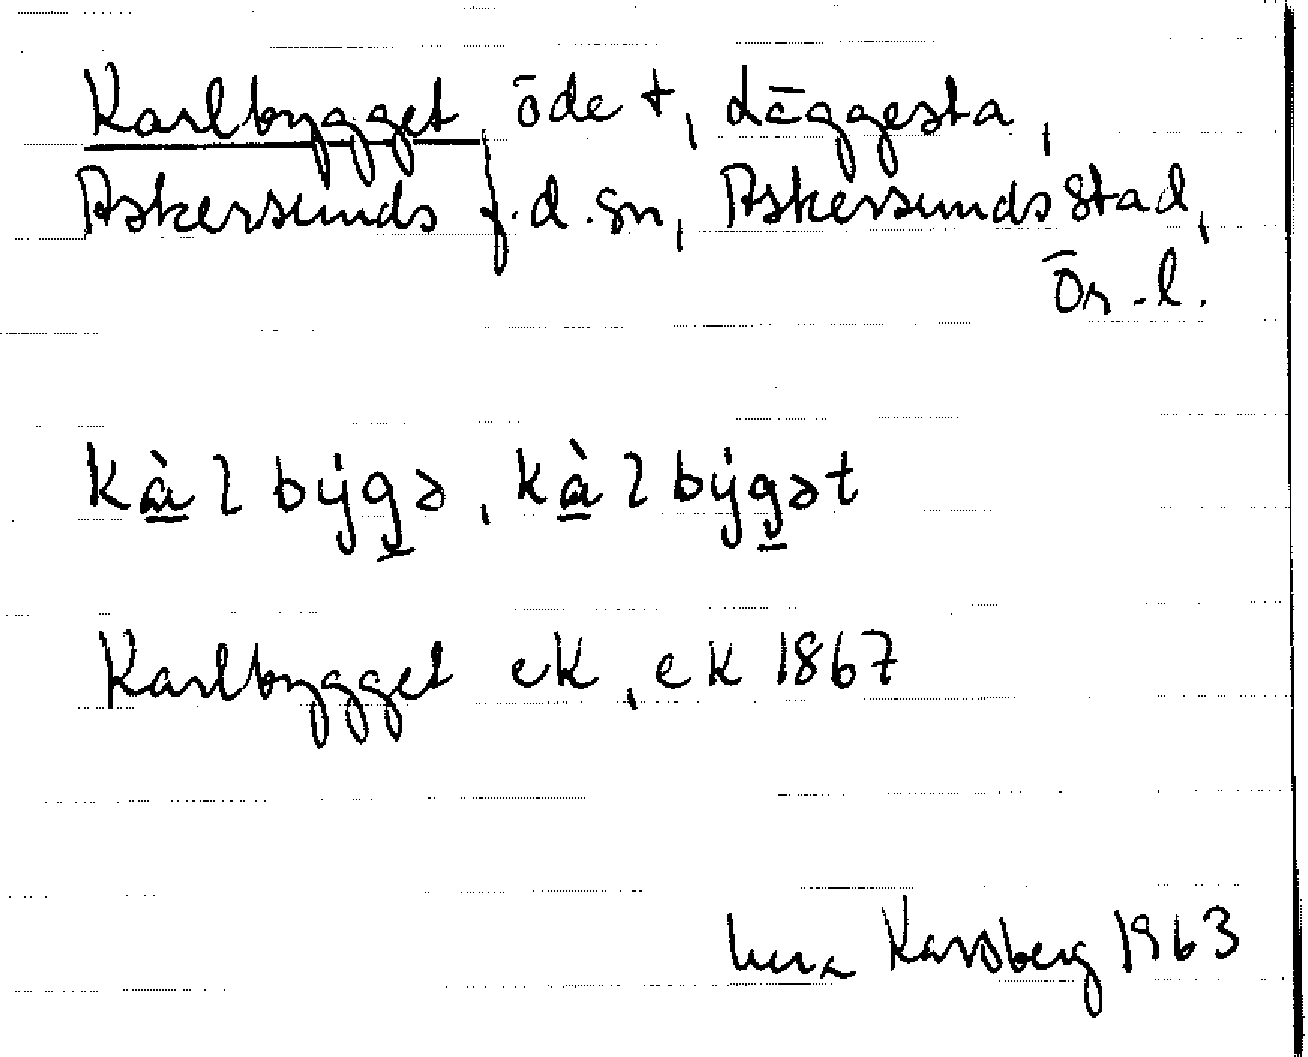 Karlbygget öde t, Läggesta,
Askersunds f.d.sn, Askersunds stad,
Ör.l.
kàl býgə, kàl býgət
Karlbygget ek, ek 1867
Karsberg 1963